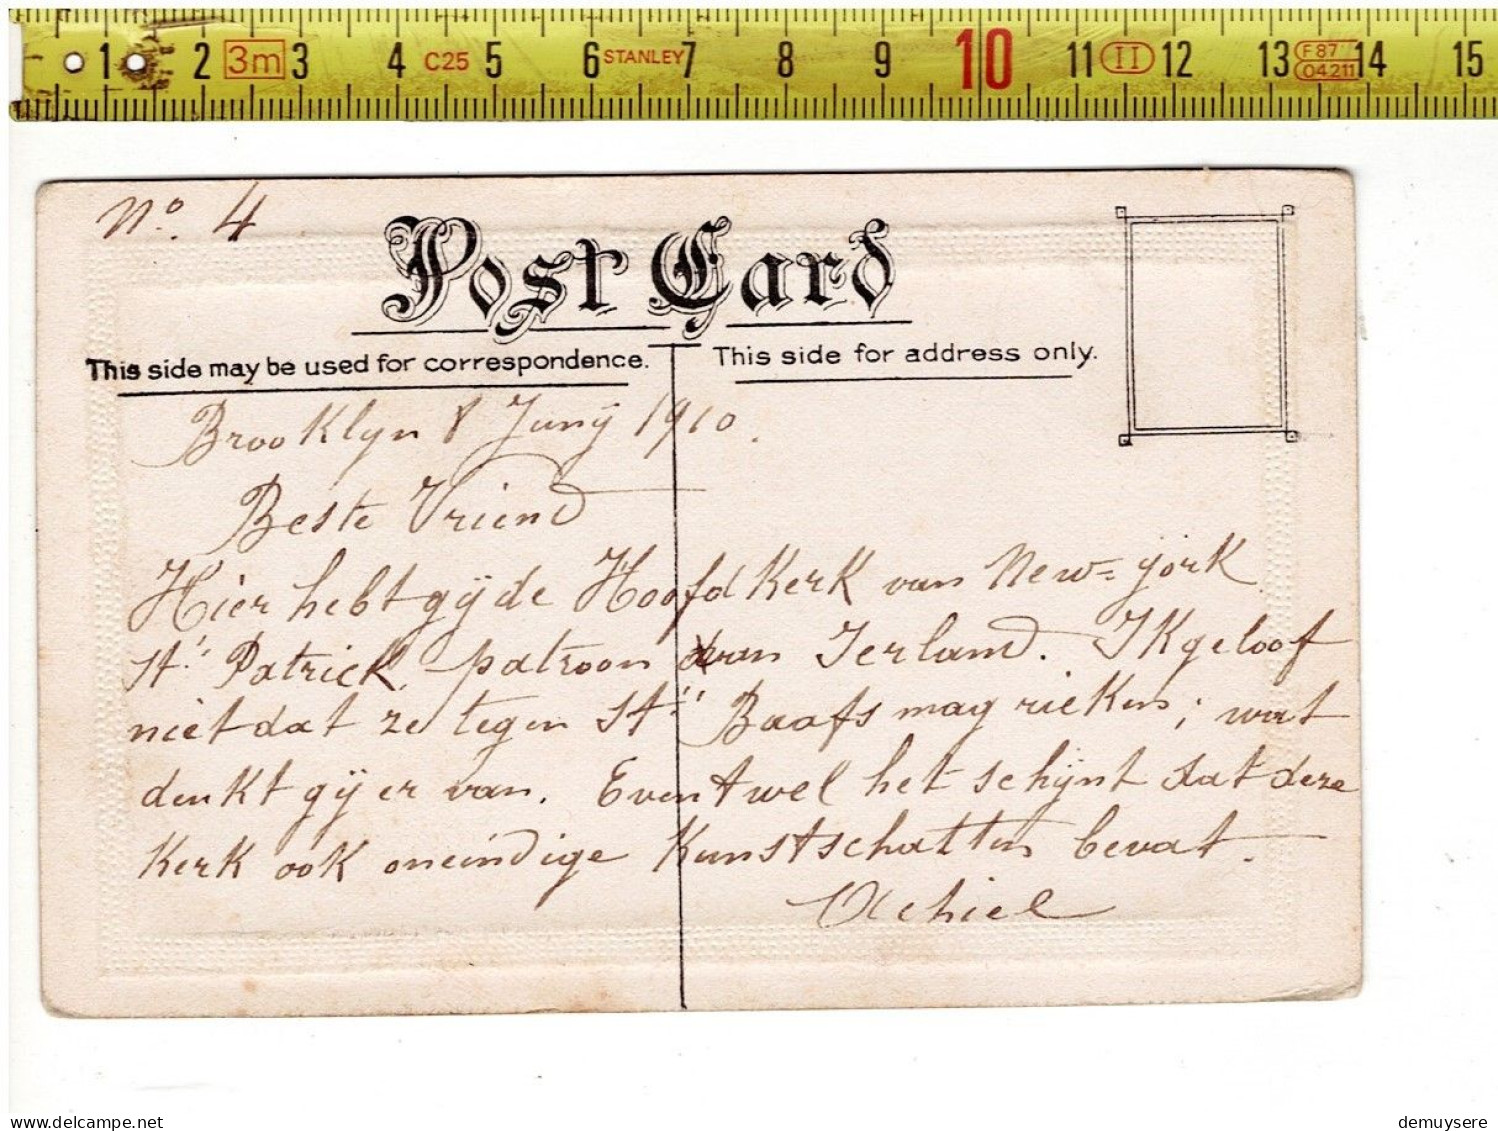 1 2 3m 3 4 C25 5 6 STANLEY 7 8 9 10 11 II 12 13 F 87 04.211 14 15
No. 4
Post Card
This side may be used for correspondence.
This side for address only.
Brooklyn 8 Juny 1910.
Beste Vriend
Hier hebt gij de Hoofd Kerk van New=york
St." Patrick, patroon van Ierland. Ik geloof
niet dat ze tegen St." Baafs mag rieken; wat
denkt gij er van. Eventwel het schijnt dat deze
Kerk ook oneindige Kunstschatten bevat.
Achiel
delcampe.net
demuysere